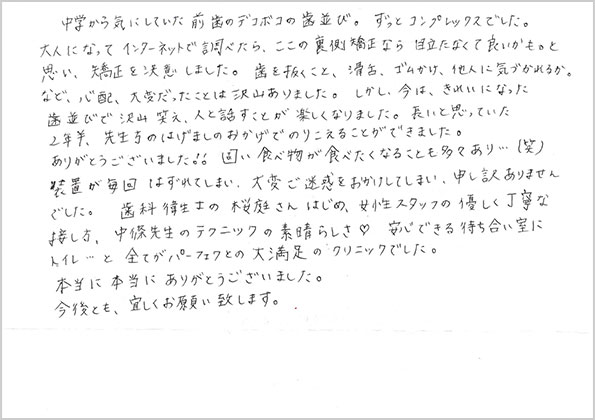 中学から気にしていた前歯のデコボコの歯並び。ずっとコンプレックスでした。
大人になってインターネットで調べたら、ここの裏側矯正なら目立たなくて良いかも。と
思い、矯正を決意しました。歯を抜くこと、滑舌、ゴムかけ、他人に気づかれるか。
など、心配、大変だったことは沢山ありました。しかし、今は、きれいになった
歯並びで沢山笑え、人と話すことが楽しくなりました。長いと思っていた
2年半、先生方のはげましのおかげでのりこえることができました。
ありがとうございました!! 固い食べ物が食べたくなることも多々あり…(笑)
装置が毎回はずれてしまい、大変ご迷惑をおかけしてしまい、申し訳ありません
でした。 歯科衛生士の桜庭さんはじめ、女性スタッフの優しく丁寧な
接し方、中條先生のテクニックの素晴らしさ♡ 安心できる待ち合い室に
トイレ…と全てがパーフェクトの大満足のクリニックでした。
本当に本当にありがとうございました。
今後とも、宜しくお願い致します。